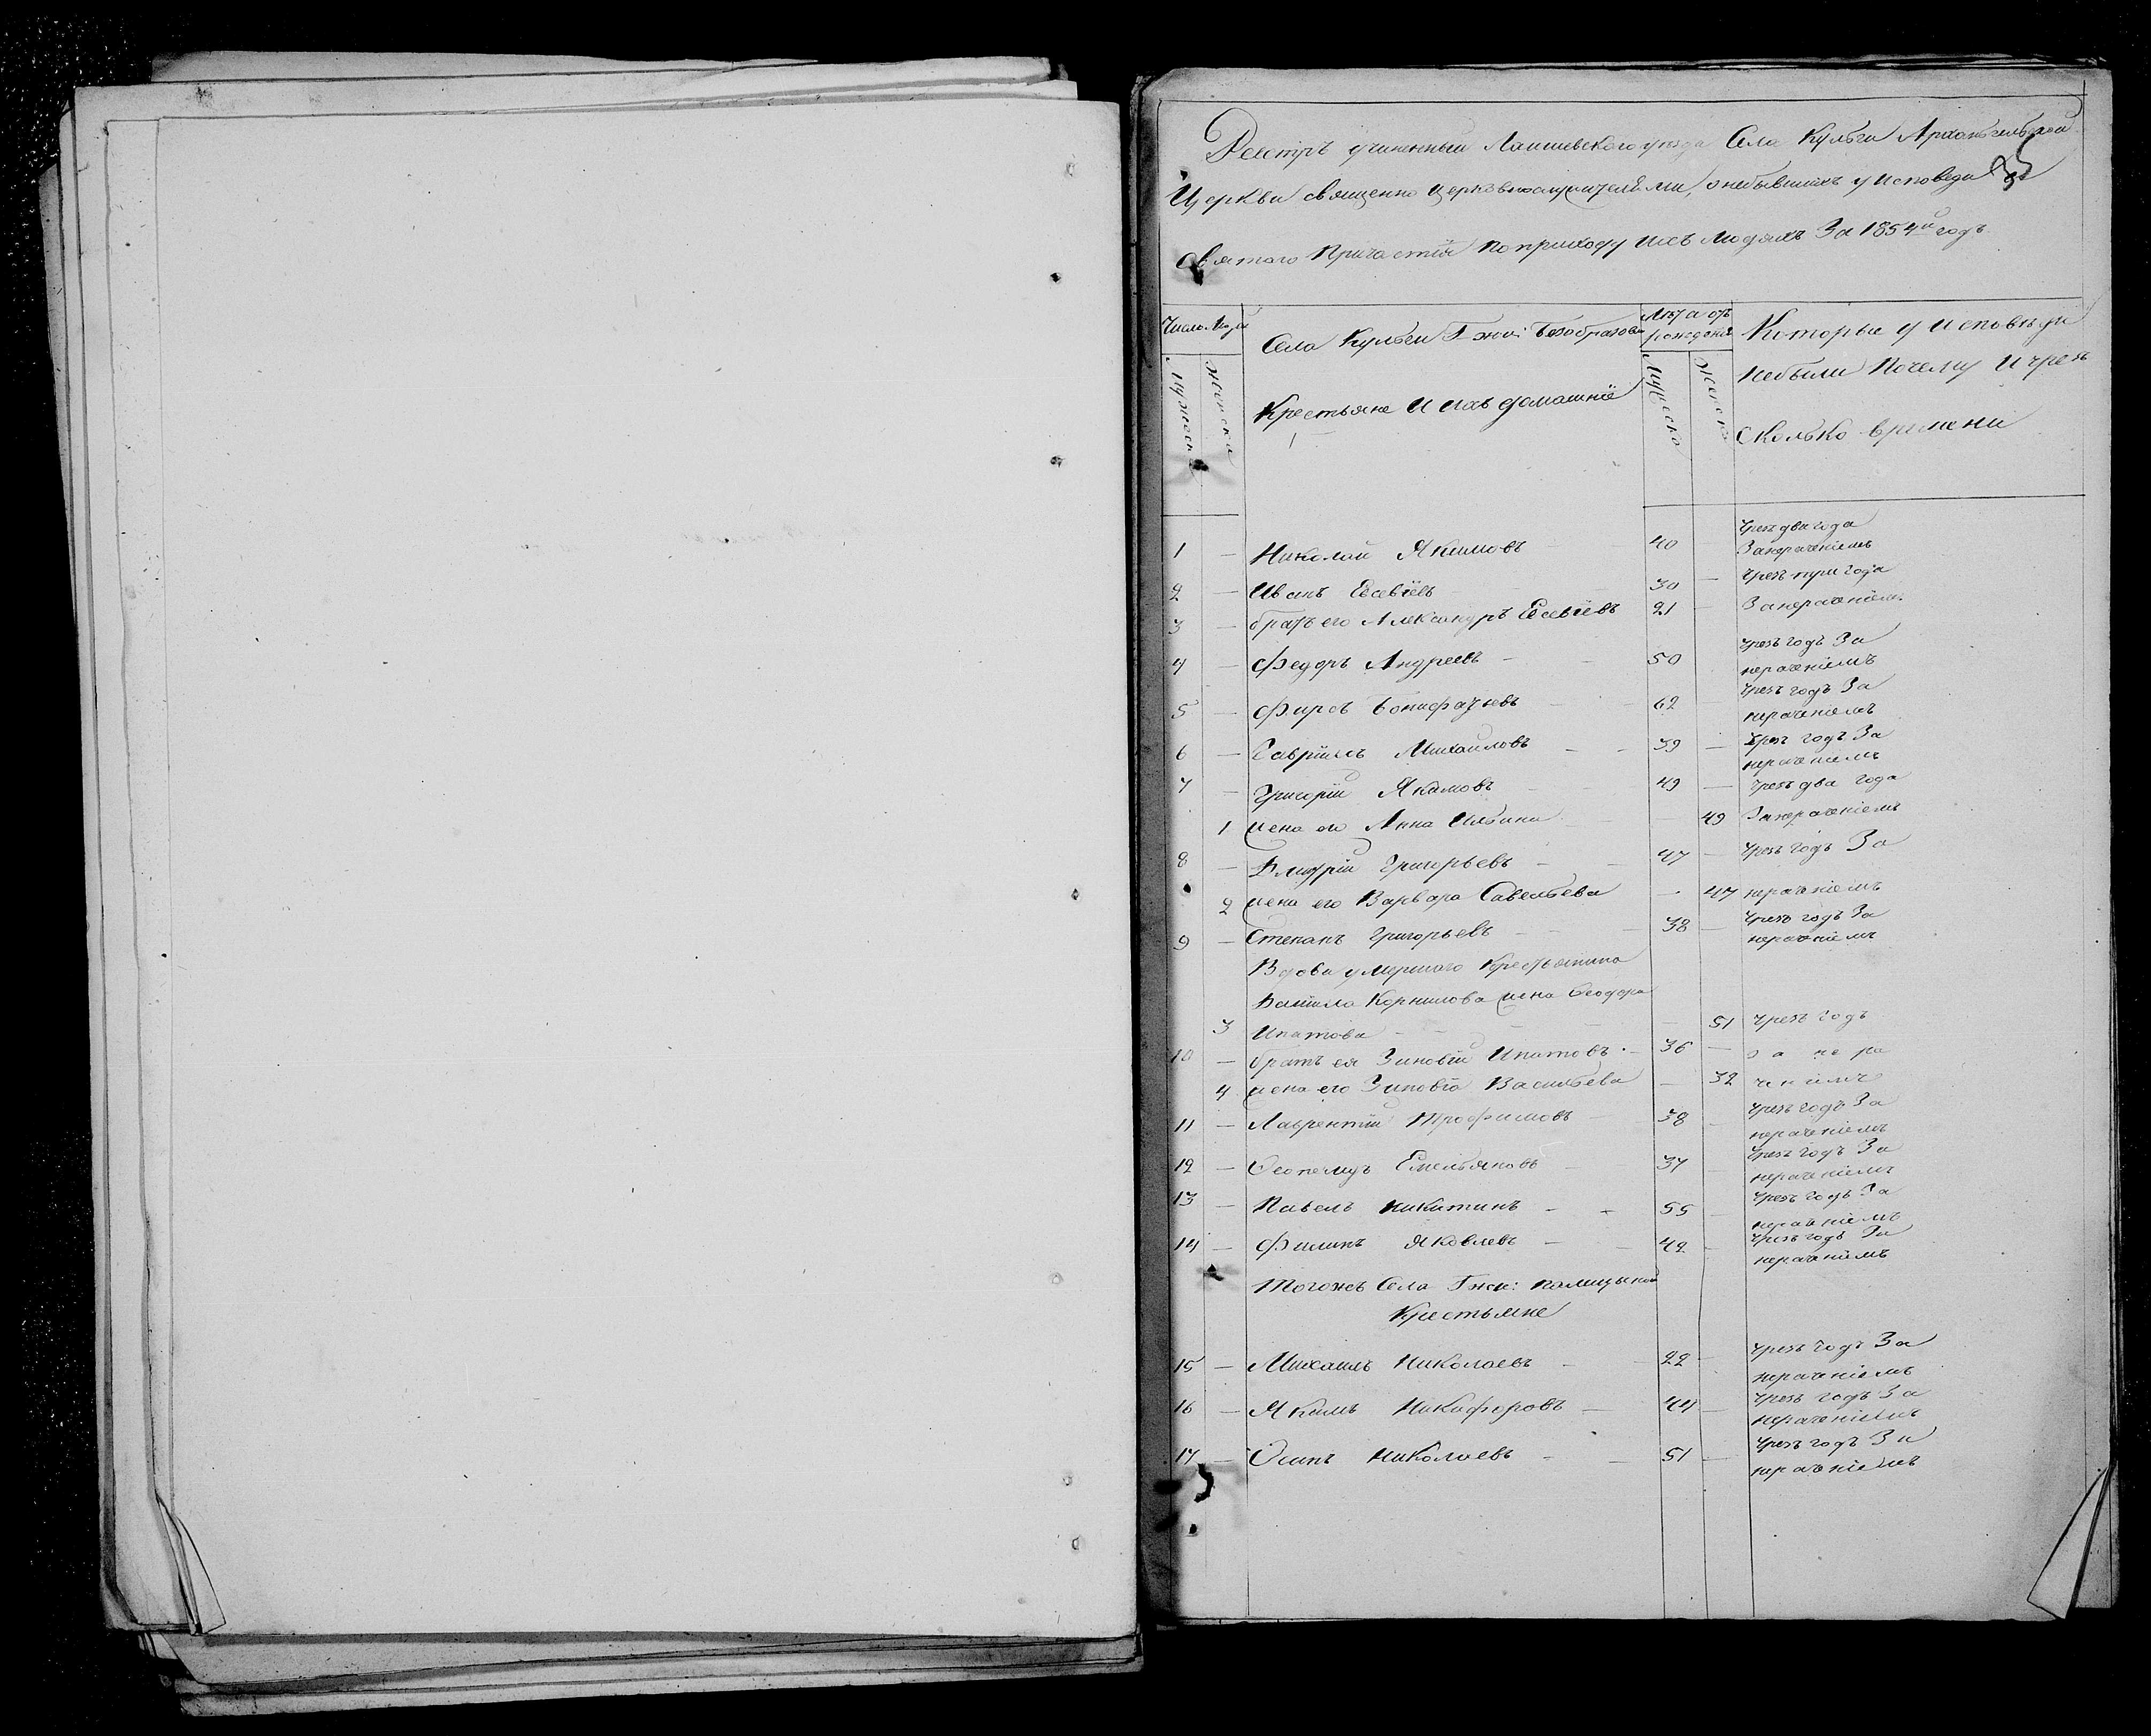 Реестръ учиненный Лаишевскаго уезда Села Кульги Архангельской
Церкви священно церковнослужителями, о небывшихъ у исповеди и
святаго Причастія по приходу ихъ людяхъ За 1854й годъ
Число Людей
мужеска
женска
Села Кульги Гжи: Безобразовой
Крестьяне и ихъ домашніе
Лѣта отъ рожденія
Мужеска
Женска
Которые у исповѣди
небыли Почему и чрезъ
сколько времени
1 — Николай Якимовъ — 40 — Чрезъ два года Занераченіемъ
2 — Иванъ Евсевіевъ 30 — Чрезъ три года
3 — братъ его Александръ Евсевіевъ 21 — Занераченіемъ
4 — Федоръ Андреевъ — 50 Чрезъ годъ За нераченіемъ
5 — Фирсъ Бонифатьевъ — 62 Чрезъ годъ За нераченіемъ
6 — Гаврiилъ Михаиловъ — 39 — Чрезъ годъ За нераченіемъ
7 — Григорiй Якимовъ 49 — Чрезъ два года
1 жена его Анна Ильина — 49 Занераченіемъ
8 — Дмитрiй Григорьевъ — 47 — Чрезъ годъ За
2 жена его Варвара Савельева — 47 нераченіемъ
9 — Степанъ Григорьевъ — 38 — Чрезъ годъ За нераченіемъ
Вдова умершаго Крестьянина
Данила Корнилова жена Феодора
3 Ипатова — 51 Чрезъ годъ
10 — братъ ея Зиновiй Ипатовъ — 36 — за нера
4 жена его Зиновiя Васильева — 32 ченiемъ
11 — Лаврентiй Трофимовъ — 38 — Чрезъ годъ За нераченіемъ
12 — Емельяновъ — 37 Чрезъ годъ За нераченіемъ
13 — Павелъ Никитинъ — 55 — Чрезъ годъ За нераченіемъ
14 — Филипъ Яковлевъ — 42 — Чрезъ годъ За нераченіемъ
Тогожъ Села Гжи:
Крестьяне
15 — Михаилъ Николаевъ — 22 — Чрезъ годъ За нераченіемъ
16 — Якимъ Никифоровъ — 44 — Чрезъ годъ За нераченіемъ
17 — Осипъ Николаевъ — 51 — Чрезъ годъ За нераченіемъ